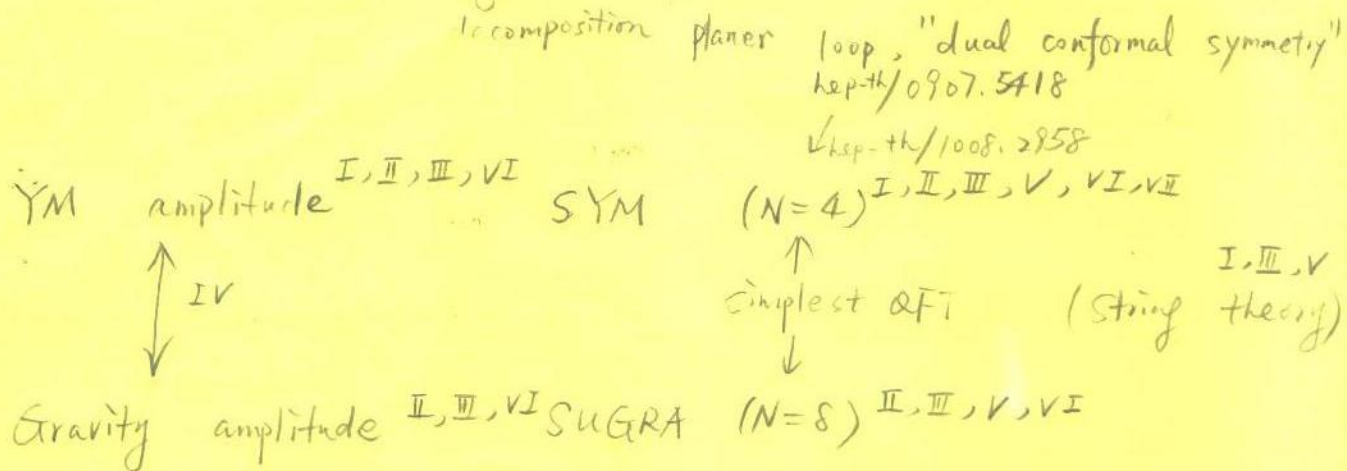 planer loop, "dual conformal symmetry"
hep-th/0907.5418
↓hep-th/1008.2958
YM amplitude I, II, III, VI SYM (N=4) I, II, III, V, VI, VII
↕ IV
↑
I, III, V
simplest QFT (string theory)
↓
Gravity amplitude II, III, VI SUGRA (N=8) II, III, V, VI